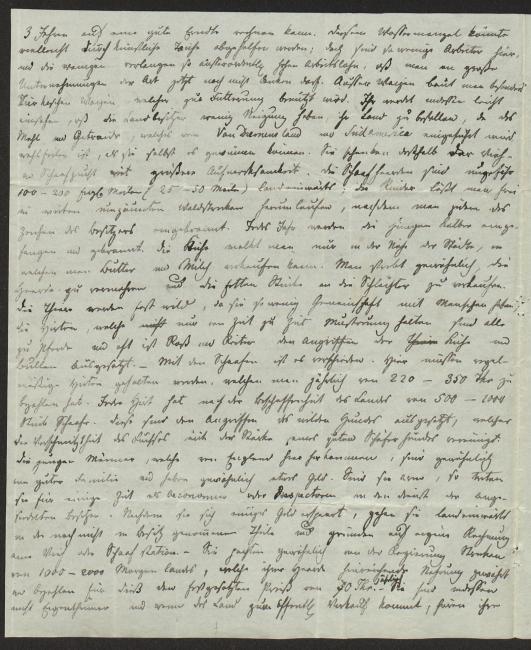 3 Jahren auf eine gute Erndte rechnen kann. Diesem Wassermangel könnte
vielleicht durch künstliche Teiche abgeholfen werden; doch sind so wenige Arbeiter hier
und die wenigen verlangen so außerordentlich hohen Arbeitslohn, daß man an große
Unternehmungen der Art jetzt noch nicht denken darf. Außer Waizen baut man besonders
Türkischen Waizen, welcher zur Fütterung benutzt wird. Ihr werdet indessen leicht
einsehen, daß die Landbesitzer wenig Neigung haben, ihr Land zu bestellen, da das
Mehl und Getraide, welches von Vandiemensland und Südamerica eingeführt wird
wohlfeiler ist, als sie selbst es gewinnen können. Sie schenken deshalb der Vieh-
und Schaafzucht weit größere Aufmerksamkeit. Die Schaafheerden sind ungefähr
100 - 200 Engl. Meilen (25 - 50 Meilen) landeinwärts. Die Rinder läßt man frei
in weiten umzäunten Waldstrecken herumlaufen, nachdem man jedem das
Zeichen des Besitzers eingebrannt. Jedes Jahr werden die jungen Kälber einge-
fangen und gebrannt. Die Kühe melkt man nur in der Nähe der Städte, in
welchen man Butter und Milch verkaufen kann. Man sucht gewöhnlich, die
Heerde zu vermehren und die fetten Stücke an die Schlächter zu verkaufen.
Die Thiere werden fast wild, da sie so wenig Gemeinschaft mit Menschen haben;
die Hirten, welche nur von Zeit zu Zeit Musterung halten, sind alle
zu Pferde und oft ist Roß und Reiter den Angriffen der Kühe und
Bullen ausgesetzt. – Mit den Schaafen ist es verschieden. Hier müssen regel-
mäßige Hirten gehalten werden, welchen man jährlich von 220 - 350 Thlr zu
bezahlen hat. Jeder Hirt hat nach der Beschaffenheit des Landes von 500 - 1000
Stück Schaafe. Diese sind den Angriffen des wilden Hundes ausgesetzt, welcher
die Verschmitztheit des Fuchses mit der Stärke eines guten Schäferhundes vereinigt.
Die jungen Männer welche von England hierherkommen, sind gewöhnlich
von guter Familie und haben gewöhnlich etwas Geld. Sind sie arm, so treten
sie für einige Zeit als Oeconomen oder Inspectoren in den Dienst der ange-
siedelten Besitzer. Nachdem sie sich einiges Geld erspart, gehen sie landeinwärts
in den noch nicht in Besitz genommenen Theile und gründen auf eigne Rechnung
eine Vieh oder Schaaf Station. – Sie pachten gewöhnlich von der Regierung Strecken
von 1000 - 2000 Morgen Lands, welche ihrer Heerde hinreichende Nahrung gewährt
und bezahlen für dieß den festgesetzten Preiß von 70 Thlr. jährlich. Sie sind indessen
nicht Eigenthümer und wenn das Land zum öffentl. Verkauf kommt, ihre